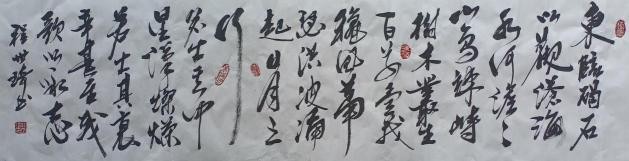 東臨碣石
以觀滄海
水何澹々
山島竦峙
樹木叢生
百草豐茂
穐風蕭
瑟洪波涌
起日月之
行
若出其中
星漢燦爛
若出其裏
幸甚至哉
歌以詠志